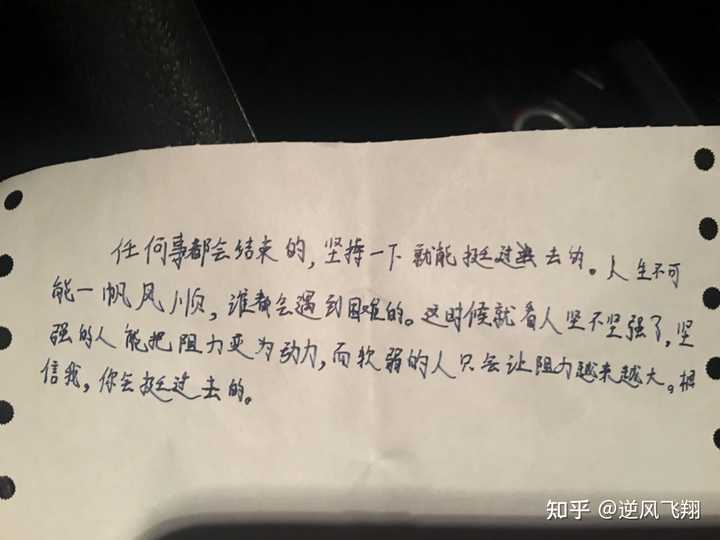 任何事都会结束的，坚持一下就能挺过去的。人生不可
能一帆风顺，谁都会遇到困难的。这时候就看人坚不坚强了，坚
强的人能把阻力变为动力，而软弱的人只会让阻力越来越大。相
信我，你会挺过去的。
知乎 @逆风飞翔